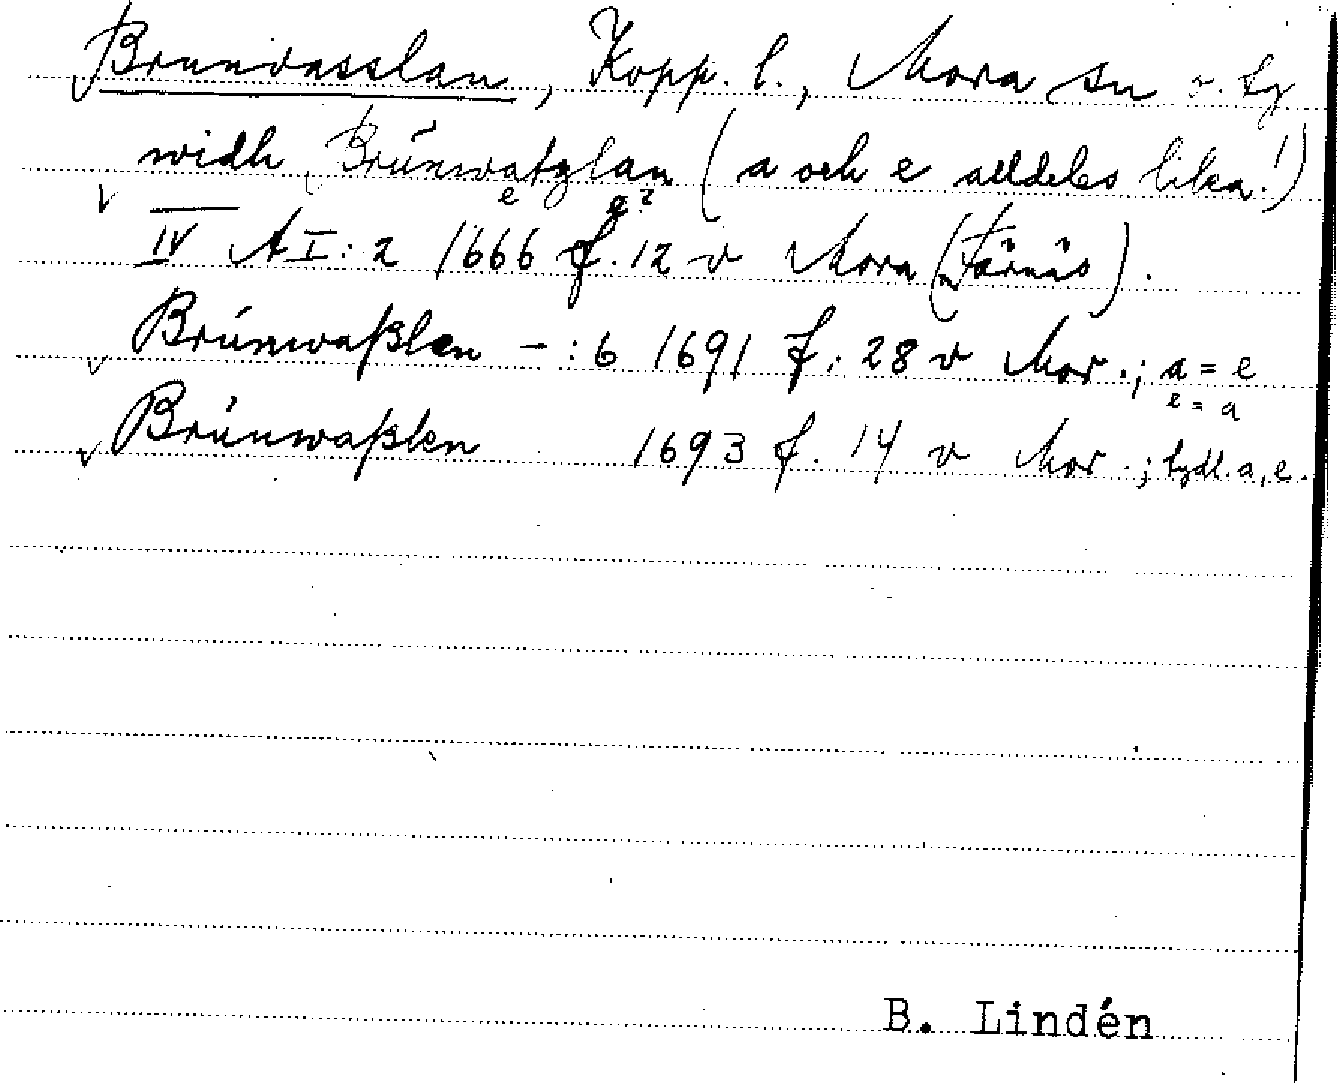 Brunvasslan, Kopp. l., Mora sn o. tg
widh Brúnwatzlan (a och e alldeles lika!)
e e?
IV A I: 2 1666 f. 12 v Mora (Färnäs).
Brúnwaßlen – : 6 1691 f. 28 v Mor.; a = e
e = a
Brúnwaßlen 1693 f. 14 v Mor.; tydl. a, e.
B. Lindén